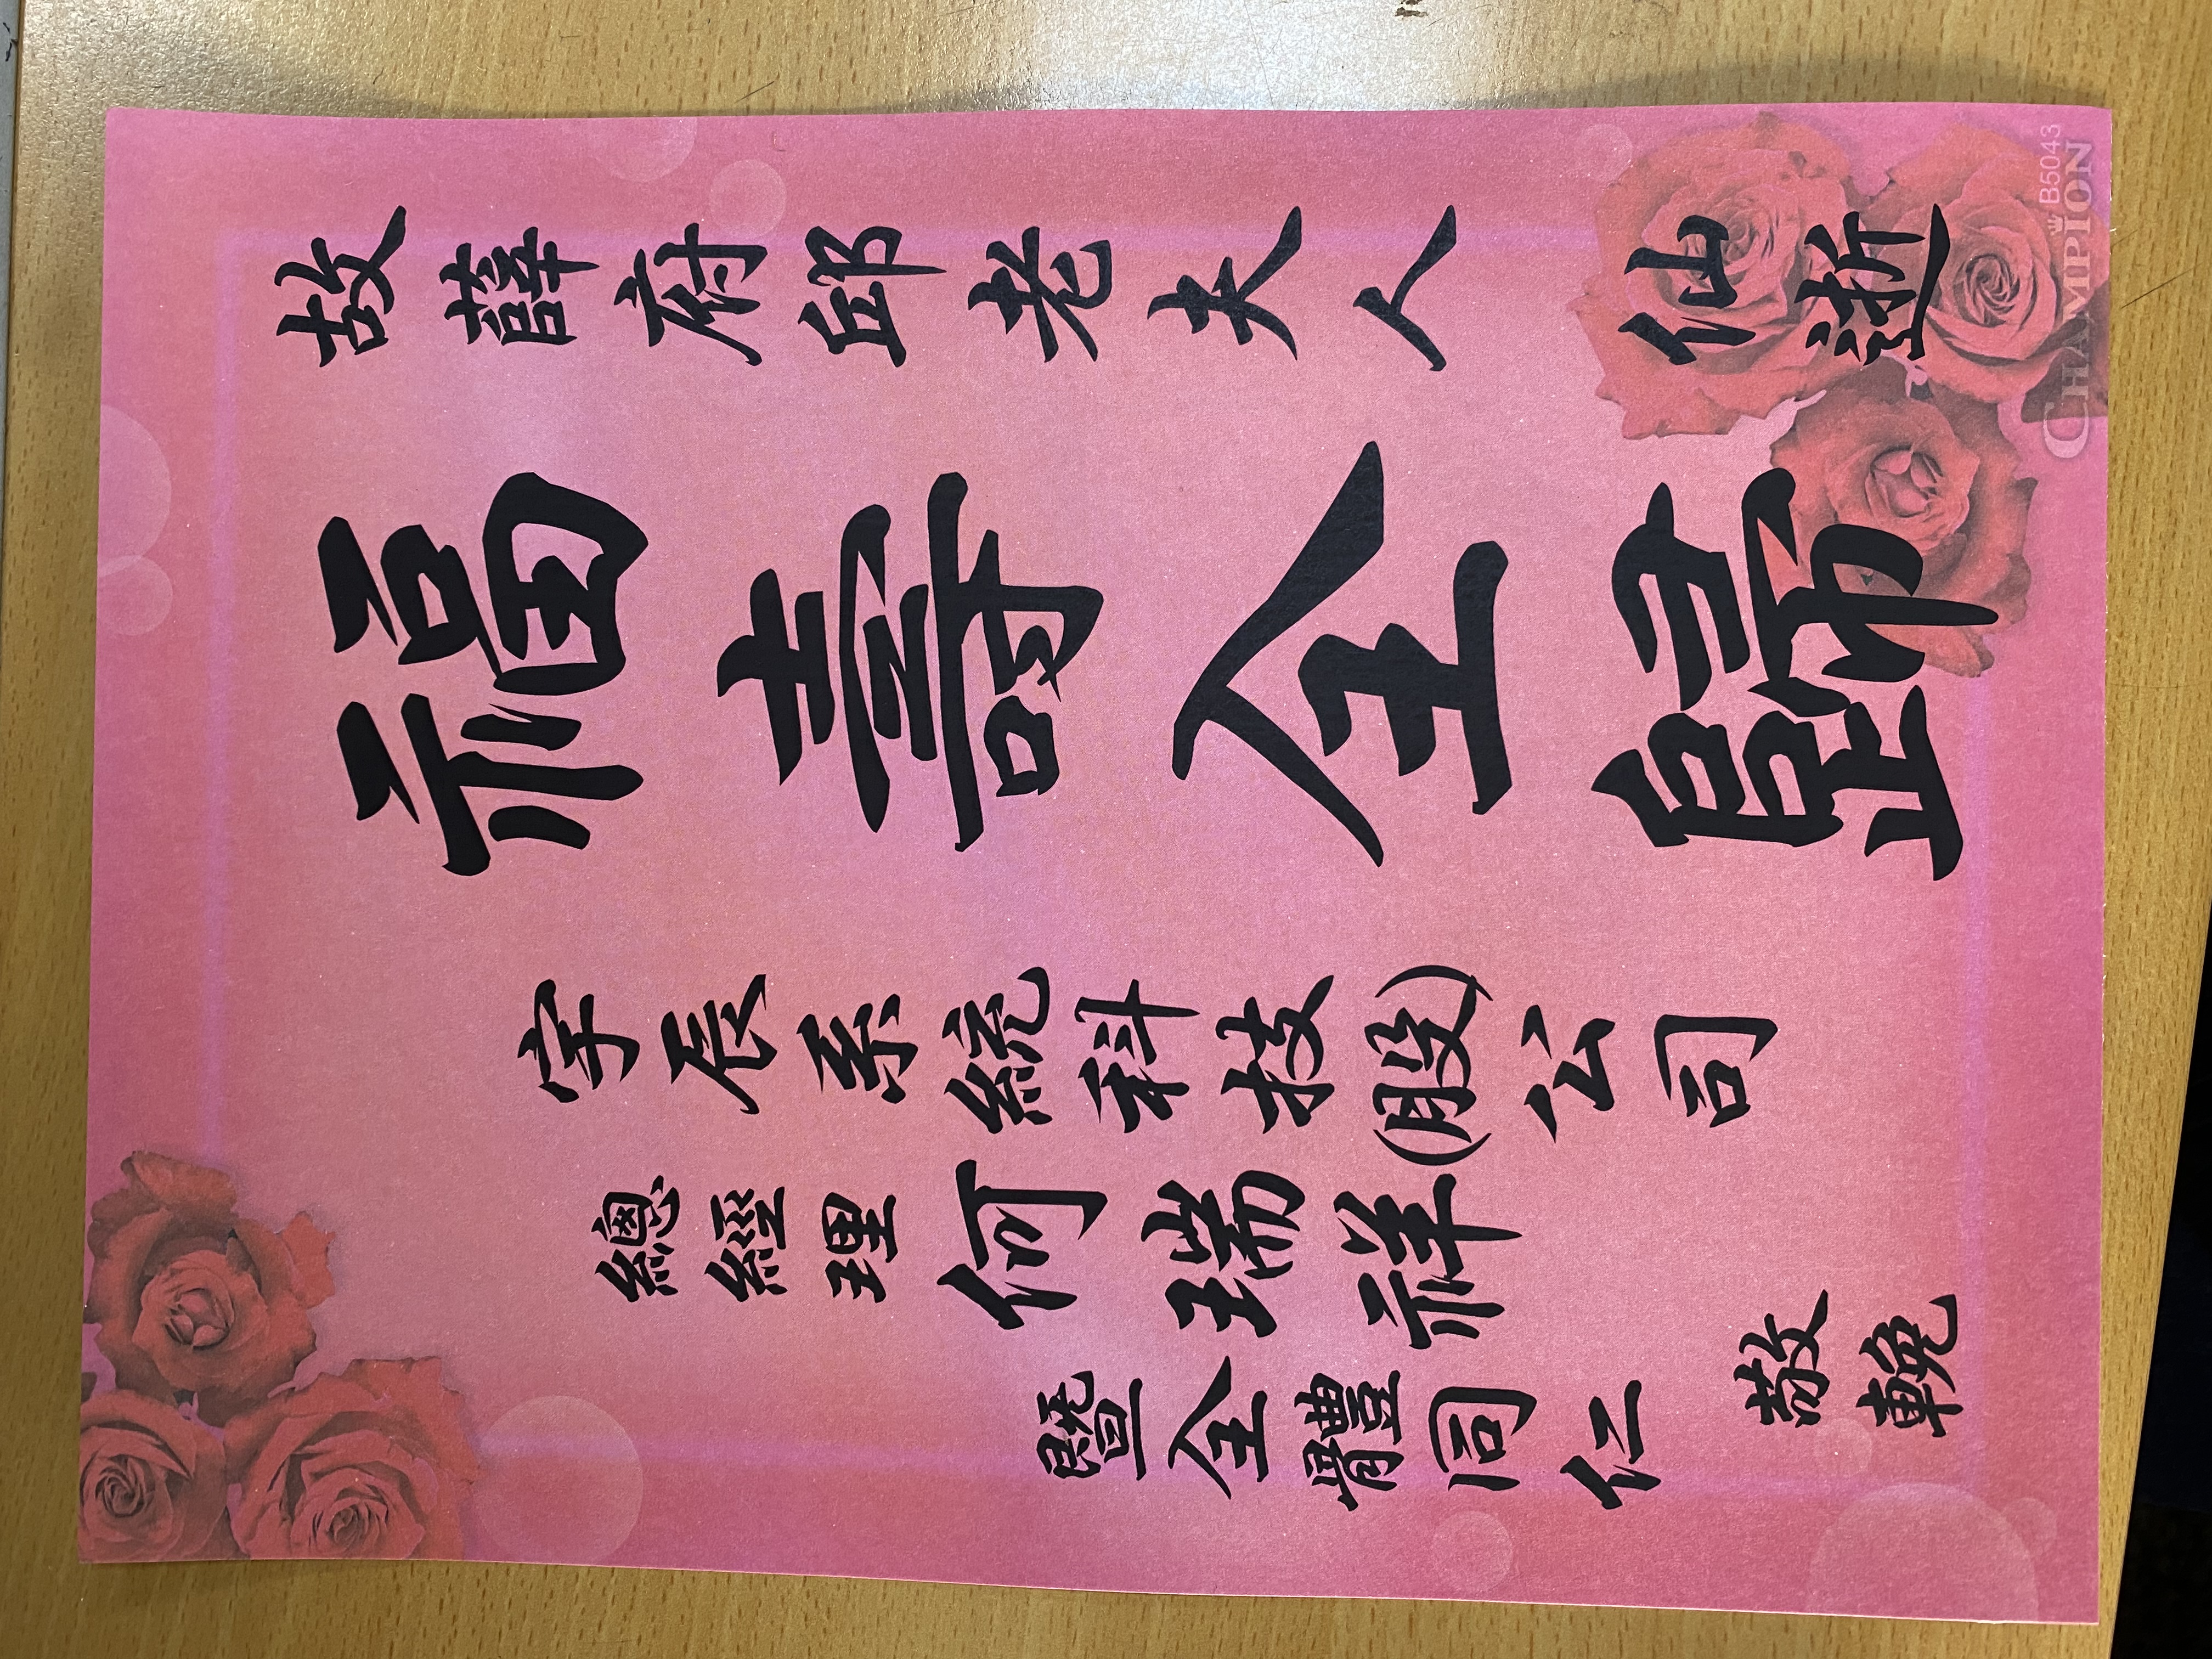 故薛府邱老夫人 仙逝
福壽全歸
宇辰系統科技(股)公司
總經理 何瑞祥
暨全體同仁
敬輓
B5043
CHAMPION